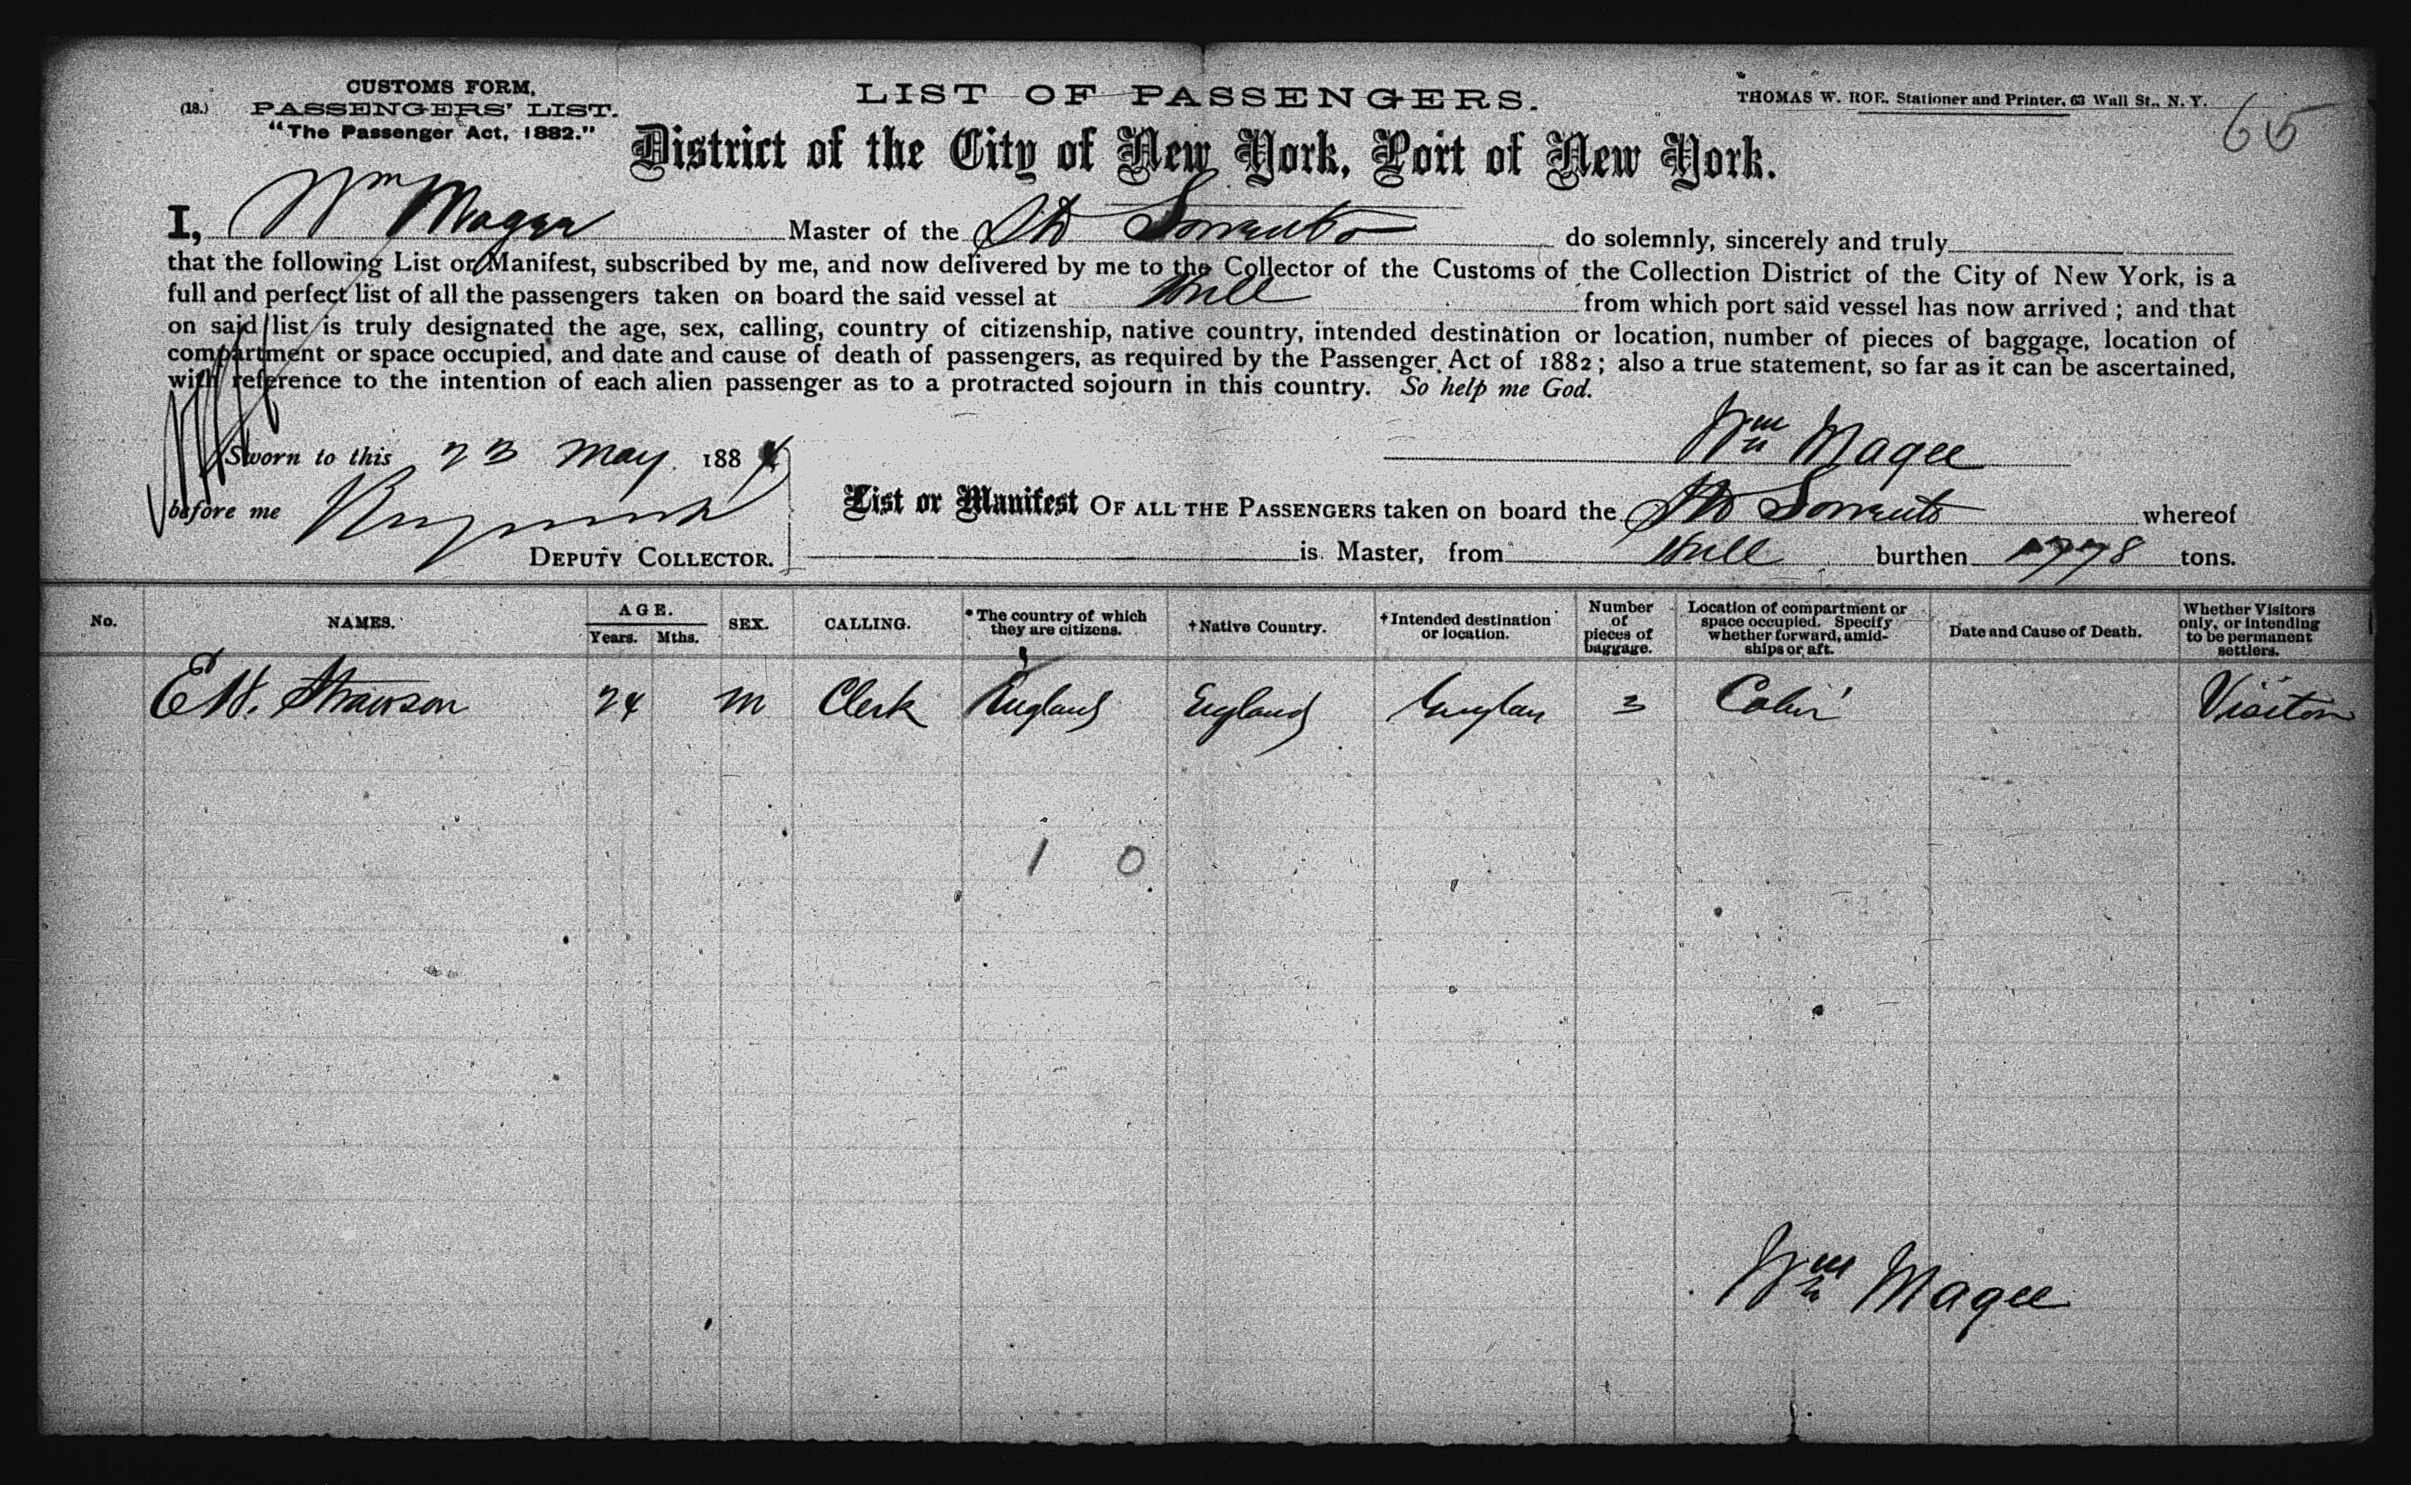 CUSTOMS FORM,
(18.) PASSENGERS' LIST.
"The Passenger Act, 1882."
LIST OF PASSENGERS.
THOMAS W. ROE, Stationer and Printer, 63 Wall St., N. Y.
65
District of the City of New York, Port of New York.
I, Wm Magee Master of the SS Sorrento do solemnly, sincerely and truly
that the following List or Manifest, subscribed by me, and now delivered by me to the Collector of the Customs of the Collection District of the City of New York, is a
full and perfect list of all the passengers taken on board the said vessel at Hull from which port said vessel has now arrived; and that
on said list is truly designated the age, sex, calling, country of citizenship, native country, intended destination or location, number of pieces of baggage, location of
compartment or space occupied, and date and cause of death of passengers, as required by the Passenger Act of 1882; also a true statement, so far as it can be ascertained,
with reference to the intention of each alien passenger as to a protracted sojourn in this country. So help me God.
Wm Magee
Sworn to this 23 May 1884
before me
DEPUTY COLLECTOR.
List or Manifest OF ALL THE PASSENGERS taken on board the SS Sorrento whereof
is Master, from Hull burthen 1778 tons.
No. NAMES. AGE. Years. Mths. SEX. CALLING. *The country of which they are citizens. †Native Country. †Intended destination or location. Number of pieces of baggage. Location of compartment or space occupied. Specify whether forward, amidships or aft. Date and Cause of Death. Whether Visitors only, or intending to be permanent settlers.
E H. Strawson 24 M Clerk England England 3 Cabin Visitor
1 0
Wm Magee